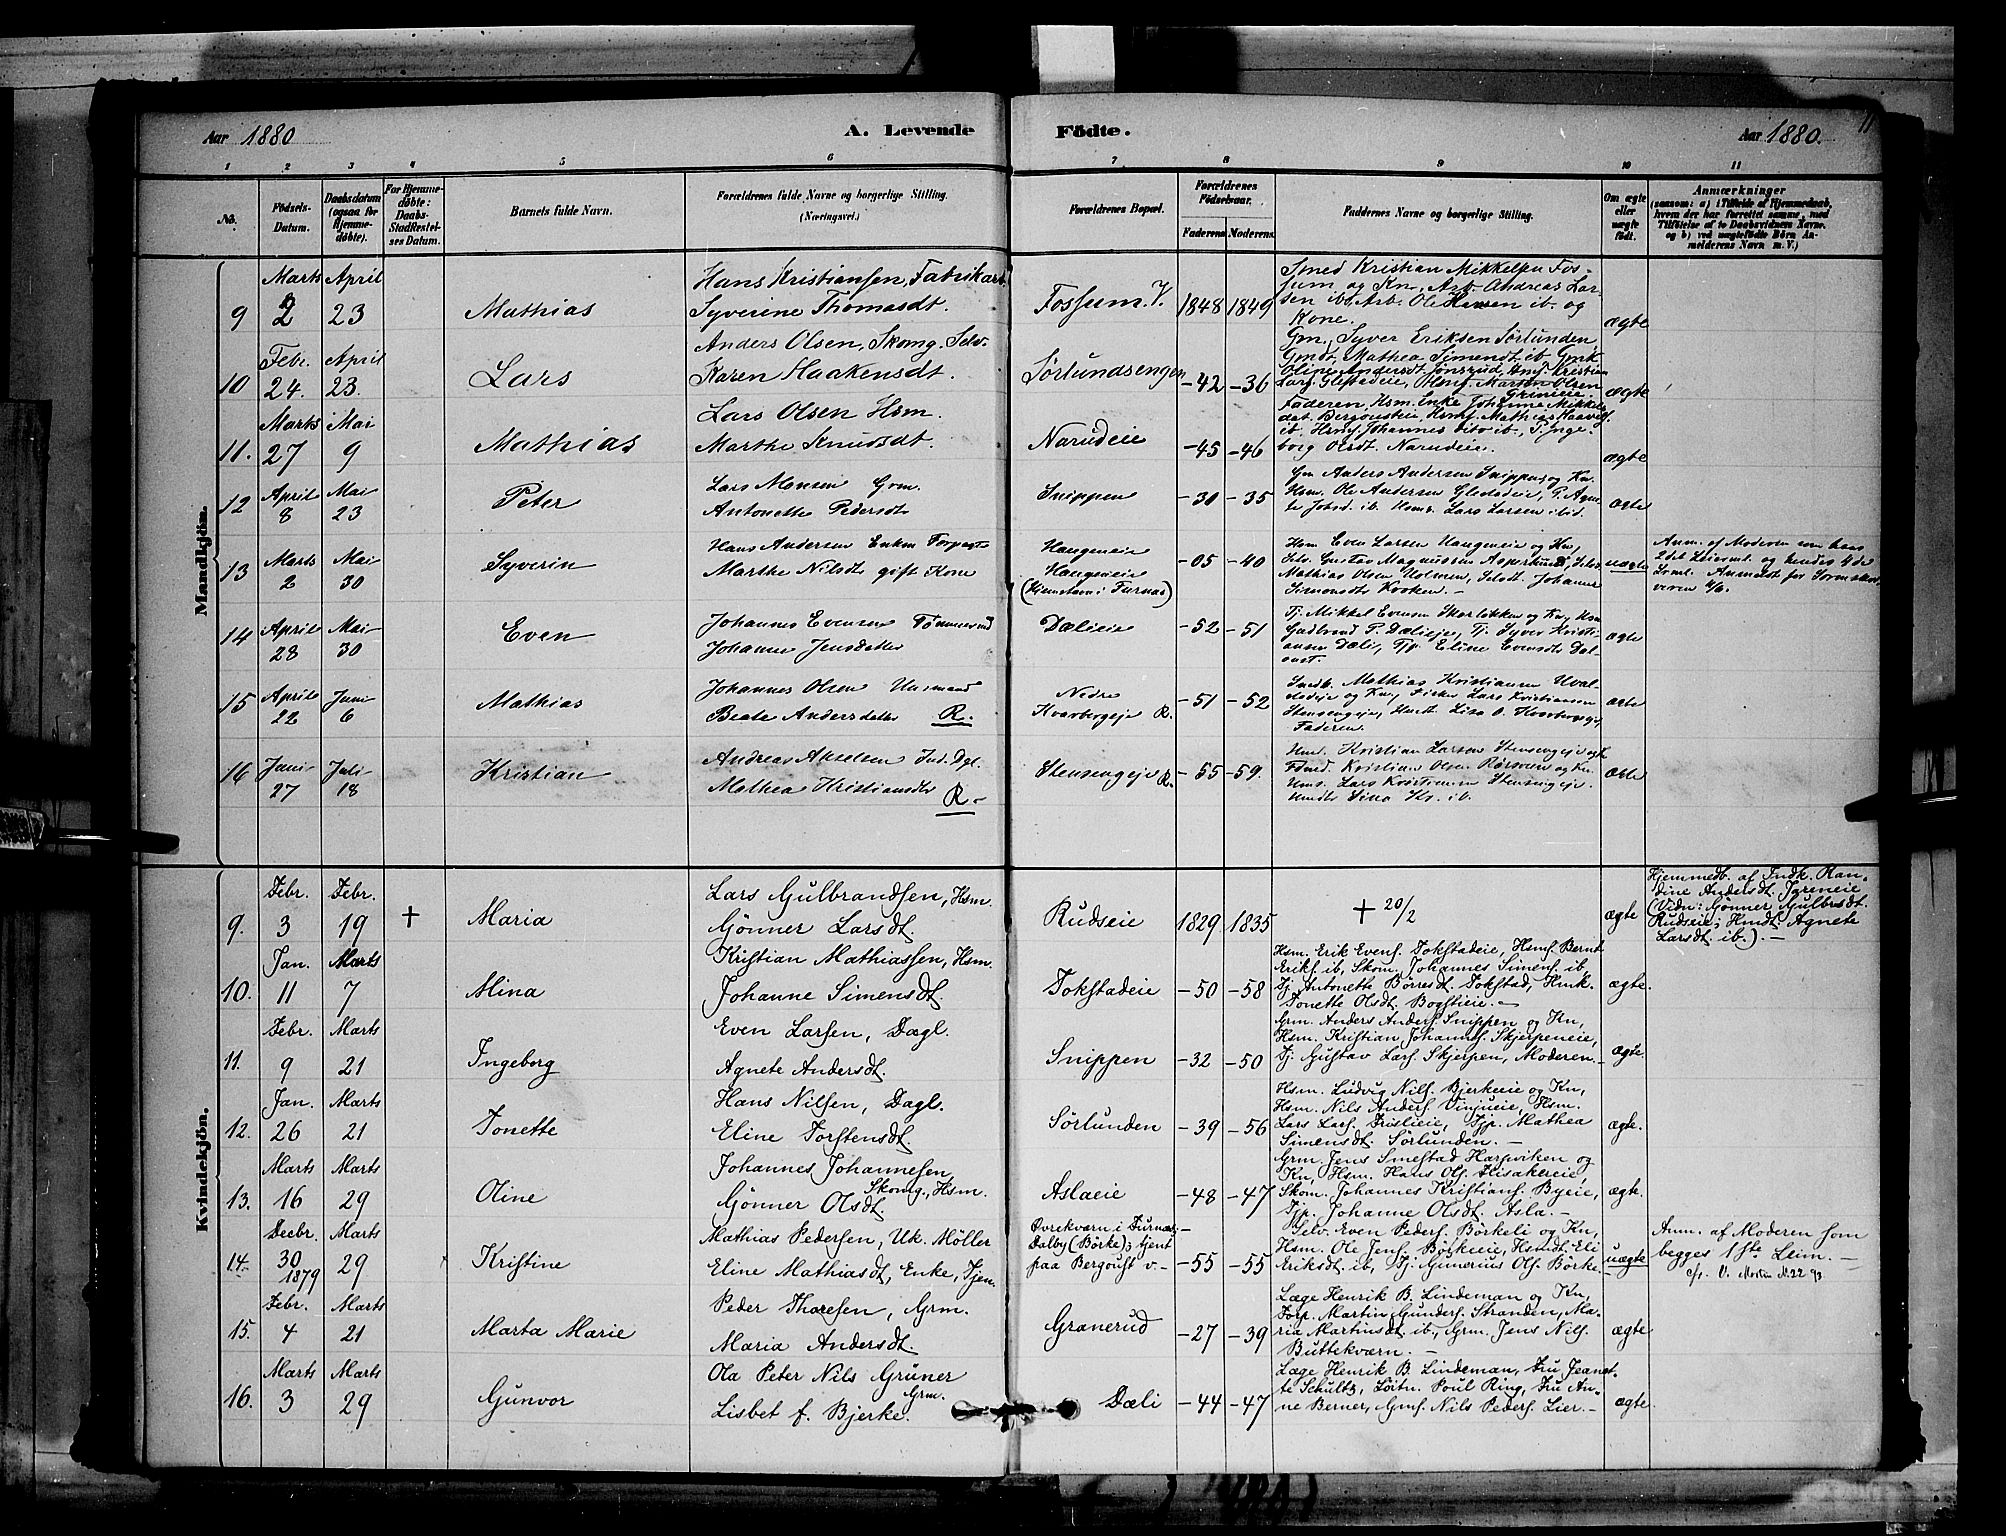 Aar 1880
A. Levende
Födte.
Aar 1880.
11
1 2 3 4 5 6 7 8 9 10 11
No.
Födsels-
Datum.
Daabsdatum
(ogsaa for
Hjemme-
döbte).
For Hjemme-
döbte:
Daabs-
Stadfestel-
ses Datum.
Barnets fulde Navn.
Forældrenes fulde Navne og borgerlige Stilling.
(Næringsvei.)
Forældrenes Bopæl.
Forældrenes
Födselsaar.
Faderens Moderens
Faddernes Navne og borgerlige Stilling.
Om ægte
eller
uægte
födt.
Anmærkninger
(saasom: a) i Tilfælde af Hjemmedaab,
hvem der har forrettet samme, med
Tilföielse af to Daabsvidners Navne,
og b) ved uægtefödte Börn An-
melderens Navn m. V.)
Mandkjön.
9
Marts
2
April
23
Mathias
Hans Kristiansen, Fabrikarb.
Syverine Thomasdt.
Fossum. V.
1848 1849
Smed Kristian Mikkelsen Fos-
sum og Kn, Arb. Andreas Lar-
sen ib, Arb. Ole Hansen ib. og
Kone.
ægte
10
Febr.
24.
April
23.
Lars
Anders Olsen, Skomg. Selv.
Karen Haakensdt.
Sörlundsengen
-42 -36
Gm. Syver Eriksen Sörlunden,
Gmdt. Mathea Simensdt. ib. Gmk.
ægte
11.
Marts
27
Mai
9
Mathias
Lars Olsen Hsm.
Marthe Knudsdt.
Narudeie
-45 -46
Faderen, Hsm. Enke Johanne Mikkels
borg Olsdt. Narudeie.
ægte
12
April
8
Mai
23
Peter
Lars Monsen Grm.
Antonette Pedersdt
Snippen
-30 -35
Gm Anders Andersen Snippen og Kn.
Hsm. Ole Andersen Glestadeie, P. Agne-
ægte
13
Marts
2
Mai
30
Syverin
Hans Andersen Enkm Torpegt
Marthe Nilsdt gift Kone
Haugeneie
Haugeneie
(Hjemstavn i Furnæs)
-05 -40
Hsm Even Larsen Haugeneie og Kn,
Mathias Olsen Holmen, Selvdt. Johanne
Simonsdt Kroken. -
uægte
Anm. af Moderen som hans
2det Leierml. og hendes 4de
14
April
28
Mai
30
Even
Johannes Evensen Tömmermd
Johanne Jensdatter
Dælieie
-52 -51
Tj. Mikkel Evensen Skarlökken og Kn, Hsm
Gudbrand P. Dælieje, Tj. Syver Kristi-
ansen Dæli, Tjp. Eline Evensdt Dal-
ægte
15
April
22
Juni
6
Mathias
Johannes Olsen Husmand
Beate Andersdatter R.
Nedre
Kvarbergeje R.
-51 -52
Mathias Kristiansen
Lars Kristiansen
Stensengeje,
Faderen.
ægte
16
Juni
27
Juli
18
Kristian
Andreas Akselsen Ind. Dgl.
Mathea Kristiansdt R-
Stensengeje R.
-55 -59.
Hm. Kristian Larsen Stensengeje og K
Hms. Lars Kristiansen Stensengeje.
ægte
Kvindekjön.
9.
Febr.
3
Febr.
19
+
Maria
Lars Gulbrandsen, Hsm.
Gönner Larsdt.
Rudseie
1829 1835
+ 20/2
ægte
Hjemmedb. af Indk. Ran-
dine Andersdt. Jyreneie
(Vidn: Gönner Gulbrsdt.
Rudseie; Hmdt. Agnete
Larsdt. ib.). -
10.
Jan.
11
Marts
7
Mina
Kristian Mathiassen, Hsm.
Johanne Simensdt.
Tokstadeie
-50 -58
Hsm. Erik Evens. Tokstadeie, Hsms. Bernt
Eriks. ib, Skom. Johannes Simens. ib,
Tj. Antonette Börresdt. Tokstad, Hmk.
Tonette Olsdt. Bogstieie. -
ægte.
11.
Febr.
9
Marts
21
Ingeborg
Even Larsen, Dagl.
Agnete Andersdt.
Snippen
-32 -50
Grm. Anders Anders. Snippen og Kn,
Hsm. Kristian Johanns. Skjerpeneie,
Tj. Gustav Lars. Skjerpen, Moderen.
ægte.
12.
Jan.
26
Marts
21
Tonette
Hans Nilsen, Dagl.
Eline Torstensdt.
Sörlunden
-39 -56
Hsm. Ludvig Nils. Bjerkeeie og Kn,
Hsm. Nils Anders. Vinjueie, Hsm.
Lars Lars. Frislieie, Tjp. Mathea
Simensdt. Sörlunden. -
ægte.
13.
Marts
16
Marts
29
Oline
Johannes Johannesen
Skomg., Hsm.
Gönner Olsdt.
Aslaeie
-48 -47
Grm. Jens Smestad Harpviken og
Kn, Hsm. Hans Ols. Flisakereie,
Skom. Johannes Kristians. Byeie,
Tjp. Johanne Olsdt. Asla. -
ægte.
14.
Decbr.
30
1879
Marts
29
Kristine
Mathias Pedersen, Uk. Möller
Eline Mathiasdt, Enke, Tjen.
Övrekvern i Furnæs; -
Dalby (Börke); tjent
paa Bergoust v. -
-55 -55
Selv. Even Peders. Börkeli og Kn,
Hsm. Ole Jens. Börkeeie, Hsmdt. Eli
Eriksdt. ib, Tj. Gunerius Ols. Börke
uægte
Anm. af Moderen som
begges 1ste Leim. -
cfr. V. Morten N. 22 93
15.
Febr.
4
Marts
21
Marta Marie
Peder Thoresen, Grm.
Maria Andersdt.
Granerud
-27 -39
Læge Henrik B. Lindeman og Kn,
Forp. Martin Gunders. Stranden, Ma-
ria Martinsdt. ib., Grm. Jens Nils.
Buttekværn. -
ægte
16.
Marts
3
Marts
29
Gunvor
Ola Peter Nils Grüner
Grm.
Lisbet f. Bjerke.
Dæli
-44 -47
Læge Henrik B. Lindeman, Fru Jeanet-
te Schultz, Löitn. Poul Ring, Fru An-
ne Berner, Grms. Nils Peders. Lier. -
ægte